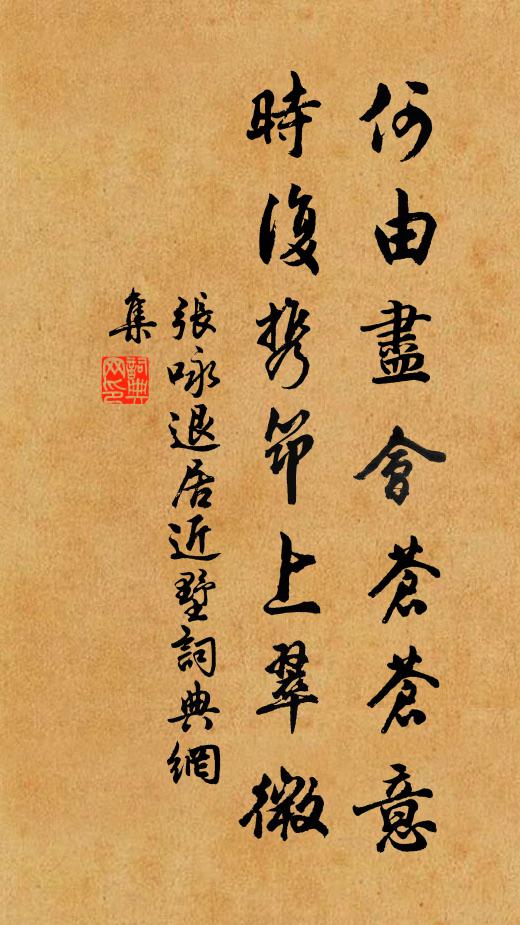 何由盡會蒼蒼意
時復携笻上翠微
張咏退居近墅詞典網
集
詞典
网印